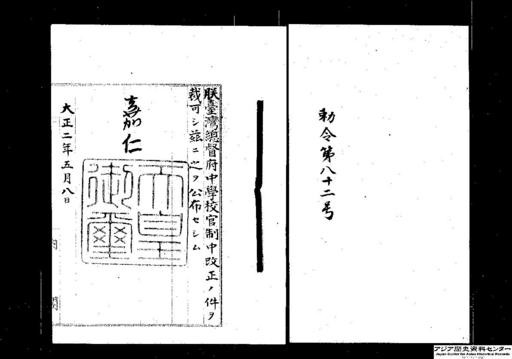 勅令第八十二号
朕臺灣總督府中學校官制中改正ノ件ヲ
裁可シ茲ニ之ヲ公布セシム
嘉仁
天皇
御璽
大正二年五月八日
内閣
アジア歴史資料センター
Japan Center for Asian Historical Records